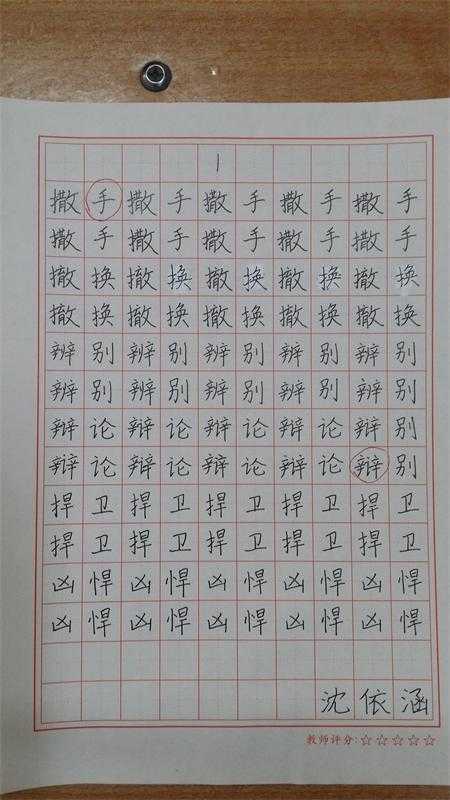 1
撒手撒手撒手撒手撒手
撒手撒手撒手撒手撒手
撤换撤换撤换撤换撤换
撤换撤换撤换撤换撤换
辨别辨别辨别辨别辨别
辨别辨别辨别辨别辨别
辩论辩论辩论辩论辩别
辩论辩论辩论辩论辩别
捍卫捍卫捍卫捍卫捍卫
捍卫捍卫捍卫捍卫捍卫
凶悍凶悍凶悍凶悍凶悍
凶悍凶悍凶悍凶悍凶悍
沈依涵
教师评分:☆☆☆☆☆